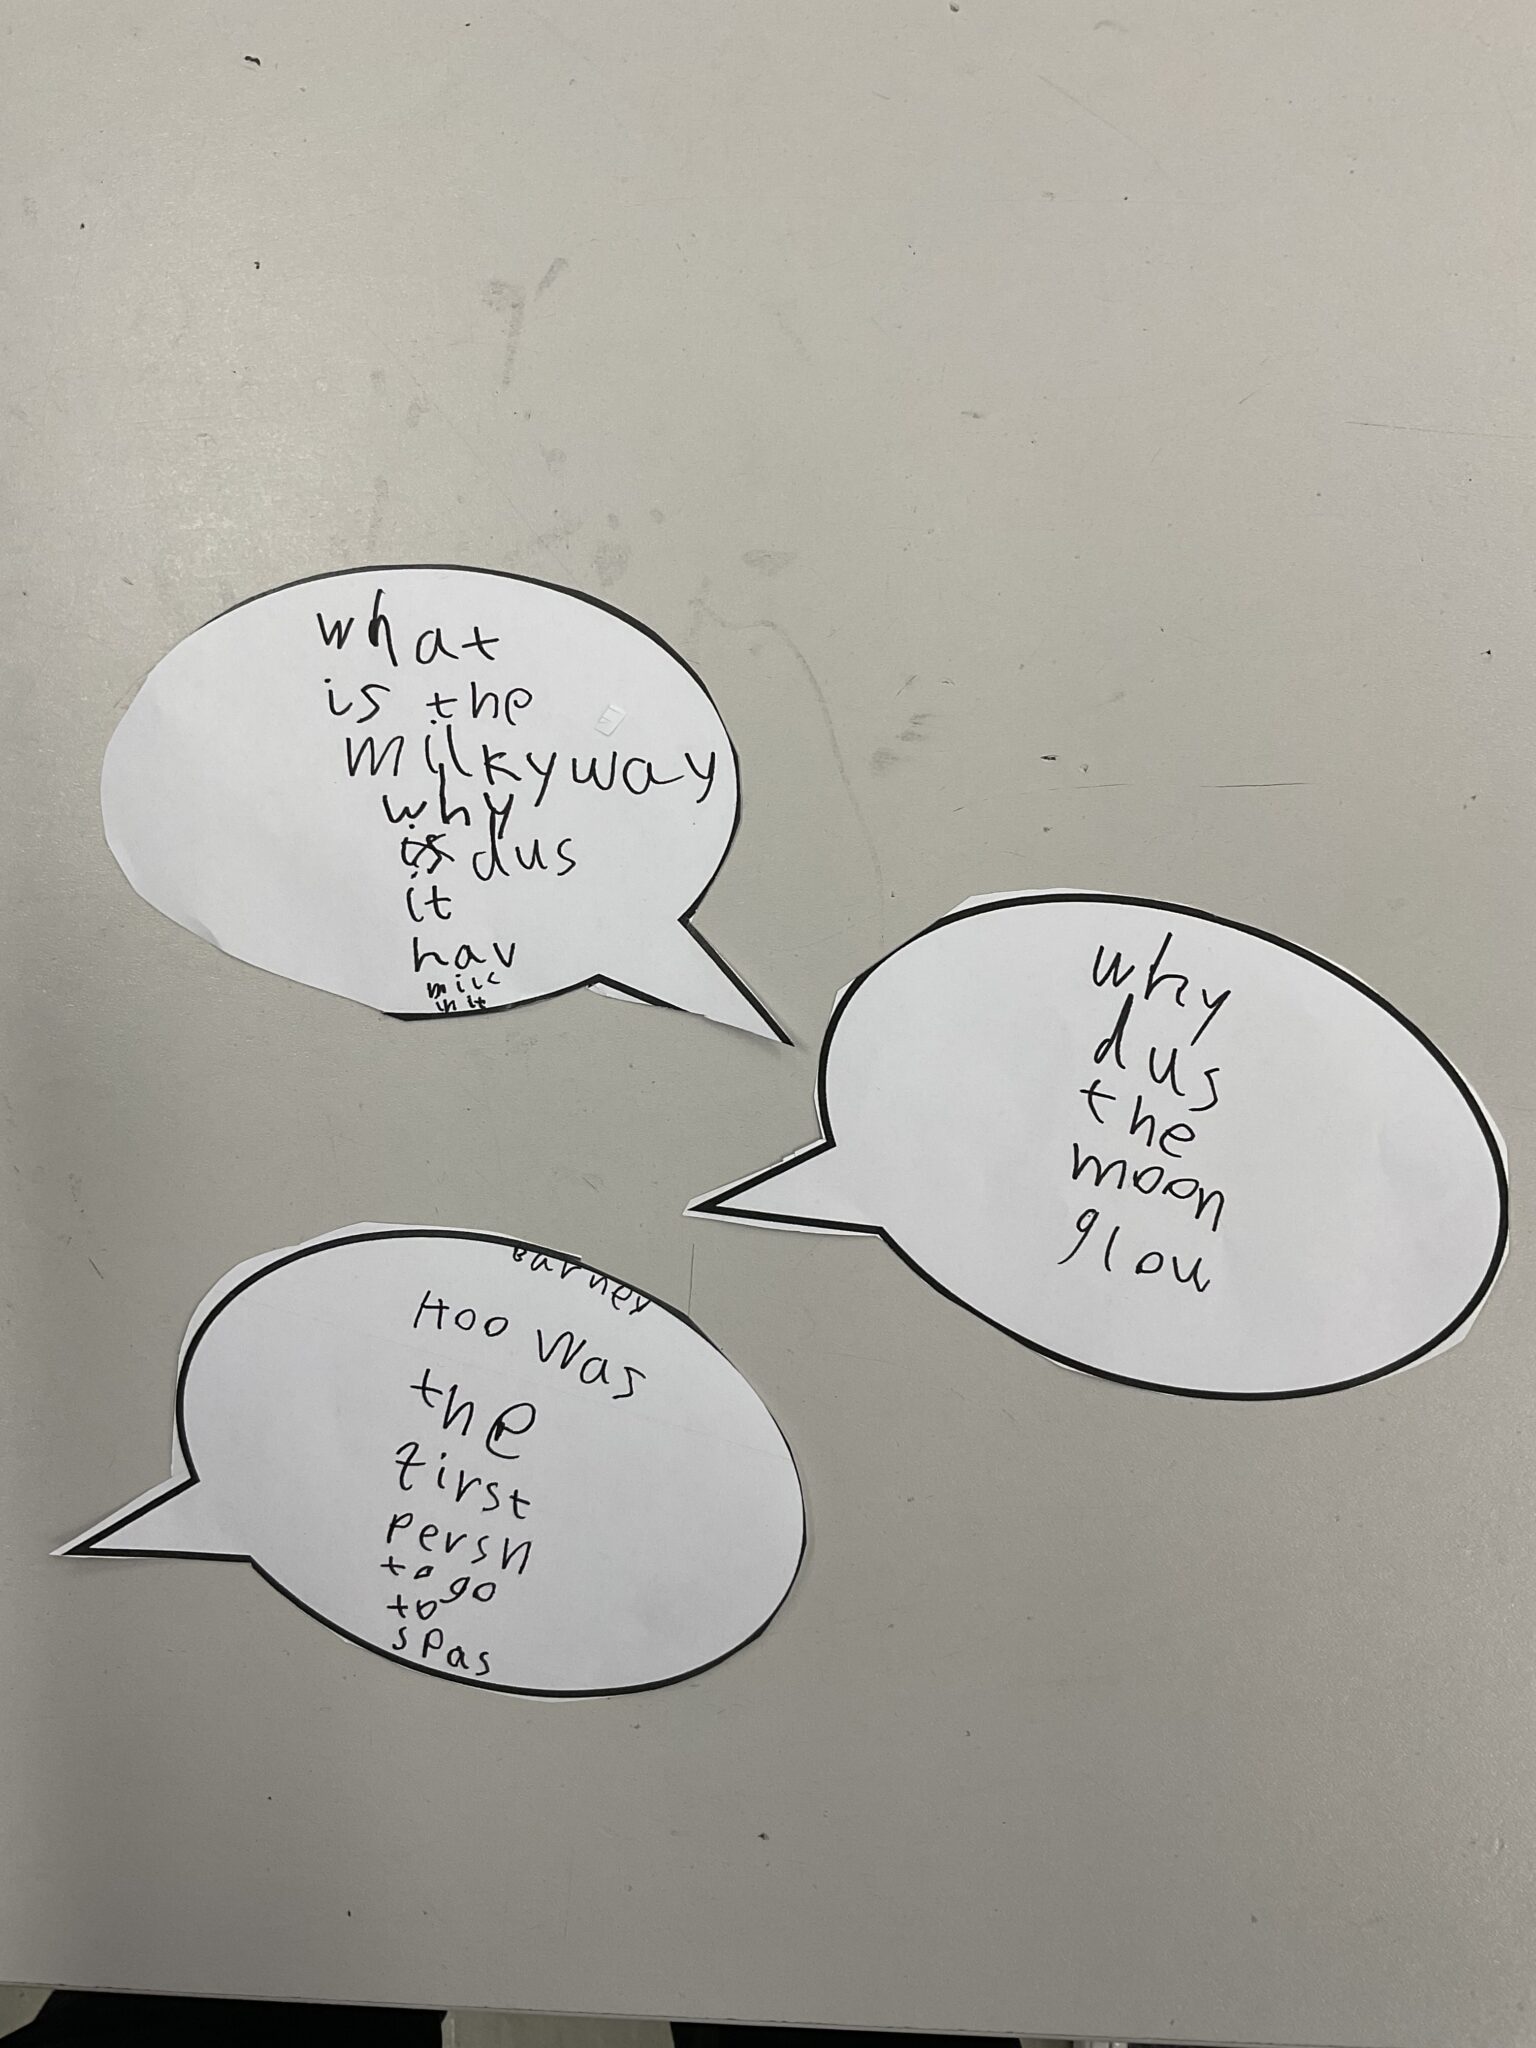 what
is the
milkyway
why
dus
it
hav
milc
in it
why
dus
the
moon
glou
Barney
Hoo was
the
first
persn
to go
to
spas